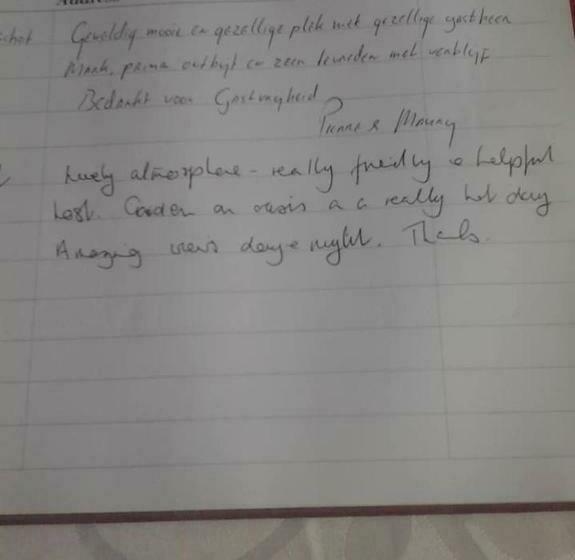 Geweldig mooie en gezellige plek met gezellige gastheer
Mark, prima ontbijt en zeer tevreden met verblijf
Bedankt voor Gastvrijheid
&
Lovely atmosphere - really friendly & helpful
host. Garden an oasis on a really hot day
Amazing views day & night. Thanks.